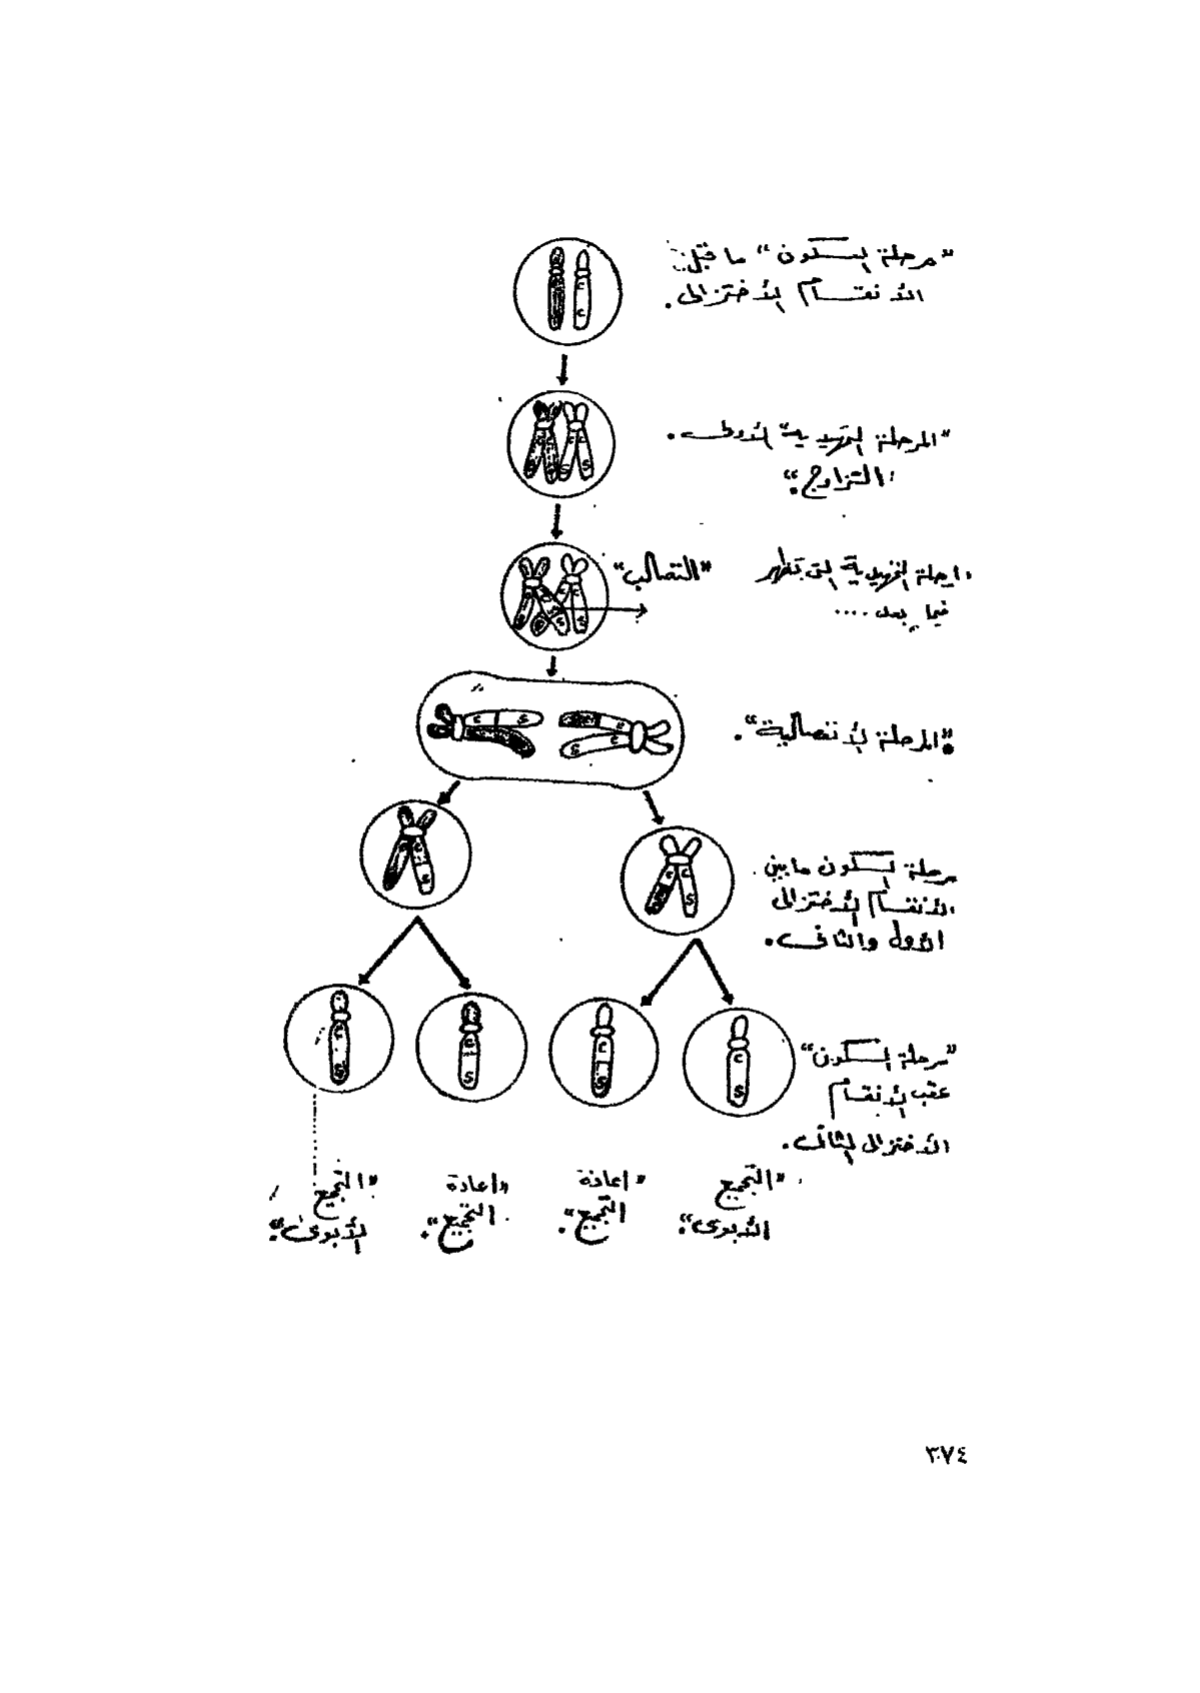 "مرحلة السكون" ما قبل
الأنقسام الأختزالى.
"المرحلة التمهيدية الأولى.
التزاوج".
"التصالب"
المرحلة التمهيدية التى تظهر
فيما بعد ....
"المرحلة الأنفصالية".
مرحلة السكون ما بين
الأنقسام الأختزالى
الأول والثانى.
"مرحلة السكون"
عقب الأنقسام
الأختزالى الثانى.
"التجميع
الأبوى".
"إعادة
التجميع".
"إعادة
التجميع".
"التجميع
الأبوى".
٣٧٤